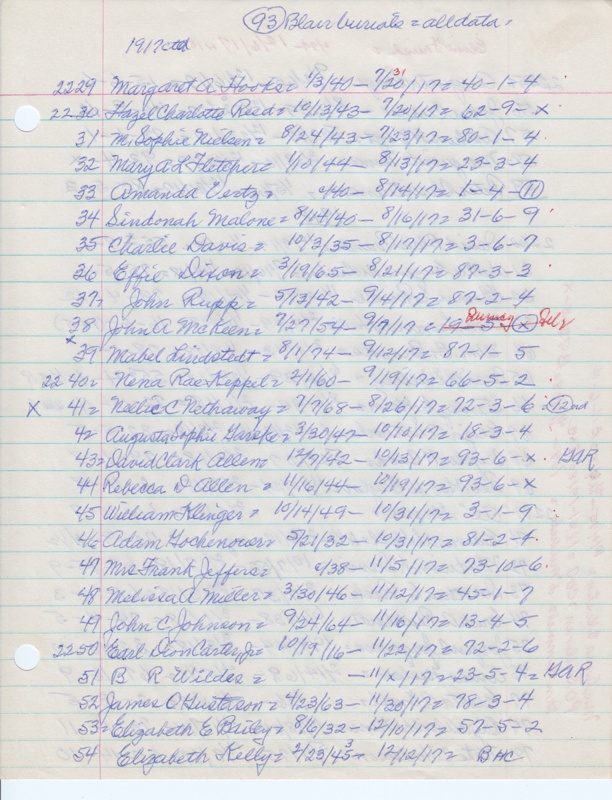 93 Blair burials = all data.
1917 ctd
2229 Margaret A. Hooker = 1/3/40 - 7/20/17 = 40-1-4
31
2230 Hazel Charlotte Reed = 10/13/43 - 7/20/17 = 62-9-x
31 M. Sophie Nielsen = 8/24/43 - 7/23/17 = 80-1-4
32 Mary A L Fletcher = 1/10/44 - 8/13/17 = 23-3-4
33 Amanda Vertz = c/40 - 8/14/17 = 1-4-11
34 Sindonah Malone = 8/14/40 - 8/16/17 = 31-6-9
35 Charlie Davis = 10/3/35 - 8/17/17 = 3-6-7
36 Effie Dixon = 3/19/65 - 8/21/17 = 87-3-3
37 = John Rupp = 5/13/42 - 9/4/17 = 87-2-4
38 John A McKeen = 7/27/54 - 9/7/17 = 19-5-x
x
39 Mabel Lindstedt = 8/1/74 - 9/12/17 = 87-1-5
2240 = Nena Rae Keppel = 2/1/60 - 9/19/17 = 66-5-2
x 41 = Nellie C Nethaway = 7/7/68 - 8/26/17 = 72-3-6 = 12 ord
42 Augusta Sophie = 3/30/47 - 10/10/17 = 18-3-4
43 = David Clark Allen = 12/7/42 - 10/13/17 = 93-6-x. GAR
44 Rebecca D Allen = 11/16/44 - 10/19/17 = 93-6-x
45 William Klinger = 10/14/49 - 10/31/17 = 3-1-9
46 Adam Hochenower = 5/21/32 - 10/31/17 = 81-2-4
47 Mrs Frank Jeffers = c/38 - 11/5/17 = 73-10-6
48 Melissa A Miller = 3/30/46 - 11/12/17 = 45-1-7
49 John C Johnson = 9/24/64 - 11/16/17 = 13-4-5
2250 Earl Dion Carter Jr = 10/19/16 - 11/22/17 = 72-2-6
51 B R Wildes = - 11/x/17 = 23-5-4 = GAR
52 James O Gustavson = 4/23/63 - 11/30/17 = 78-3-4
53 = Elizabeth E Bailey = 8/6/32 - 12/10/17 = 57-5-2
54 Elizabeth Kelly = 2/23/45 - 12/12/17 = BHC
3